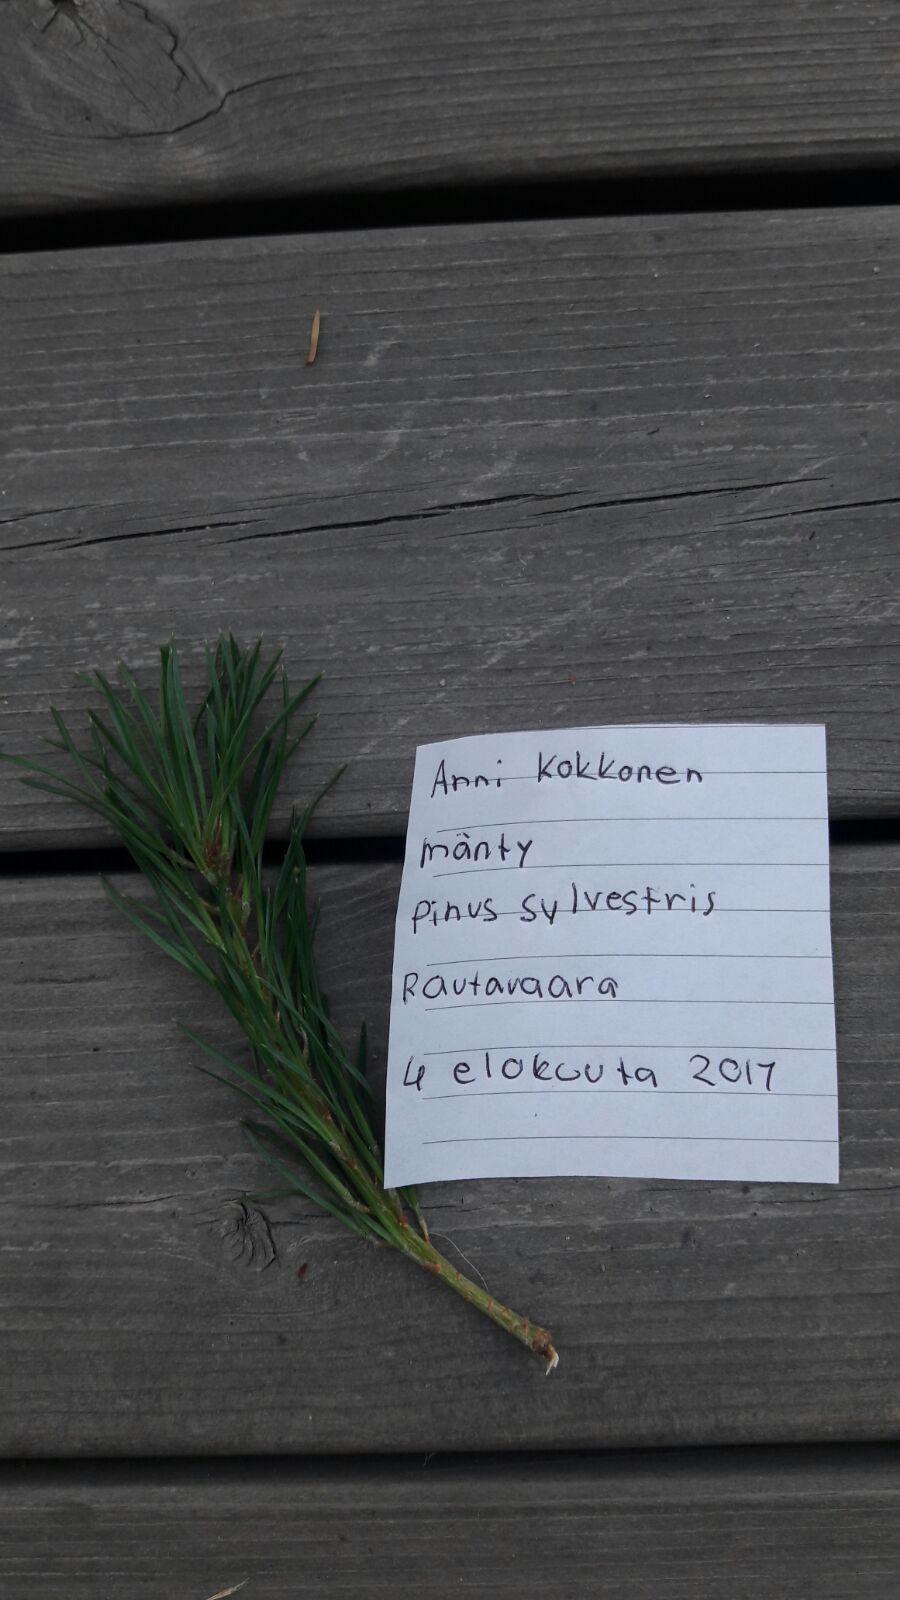 Anni Kokkonen
mänty
Pinus sylvestris
Rautavaara
4 elokuuta 2017